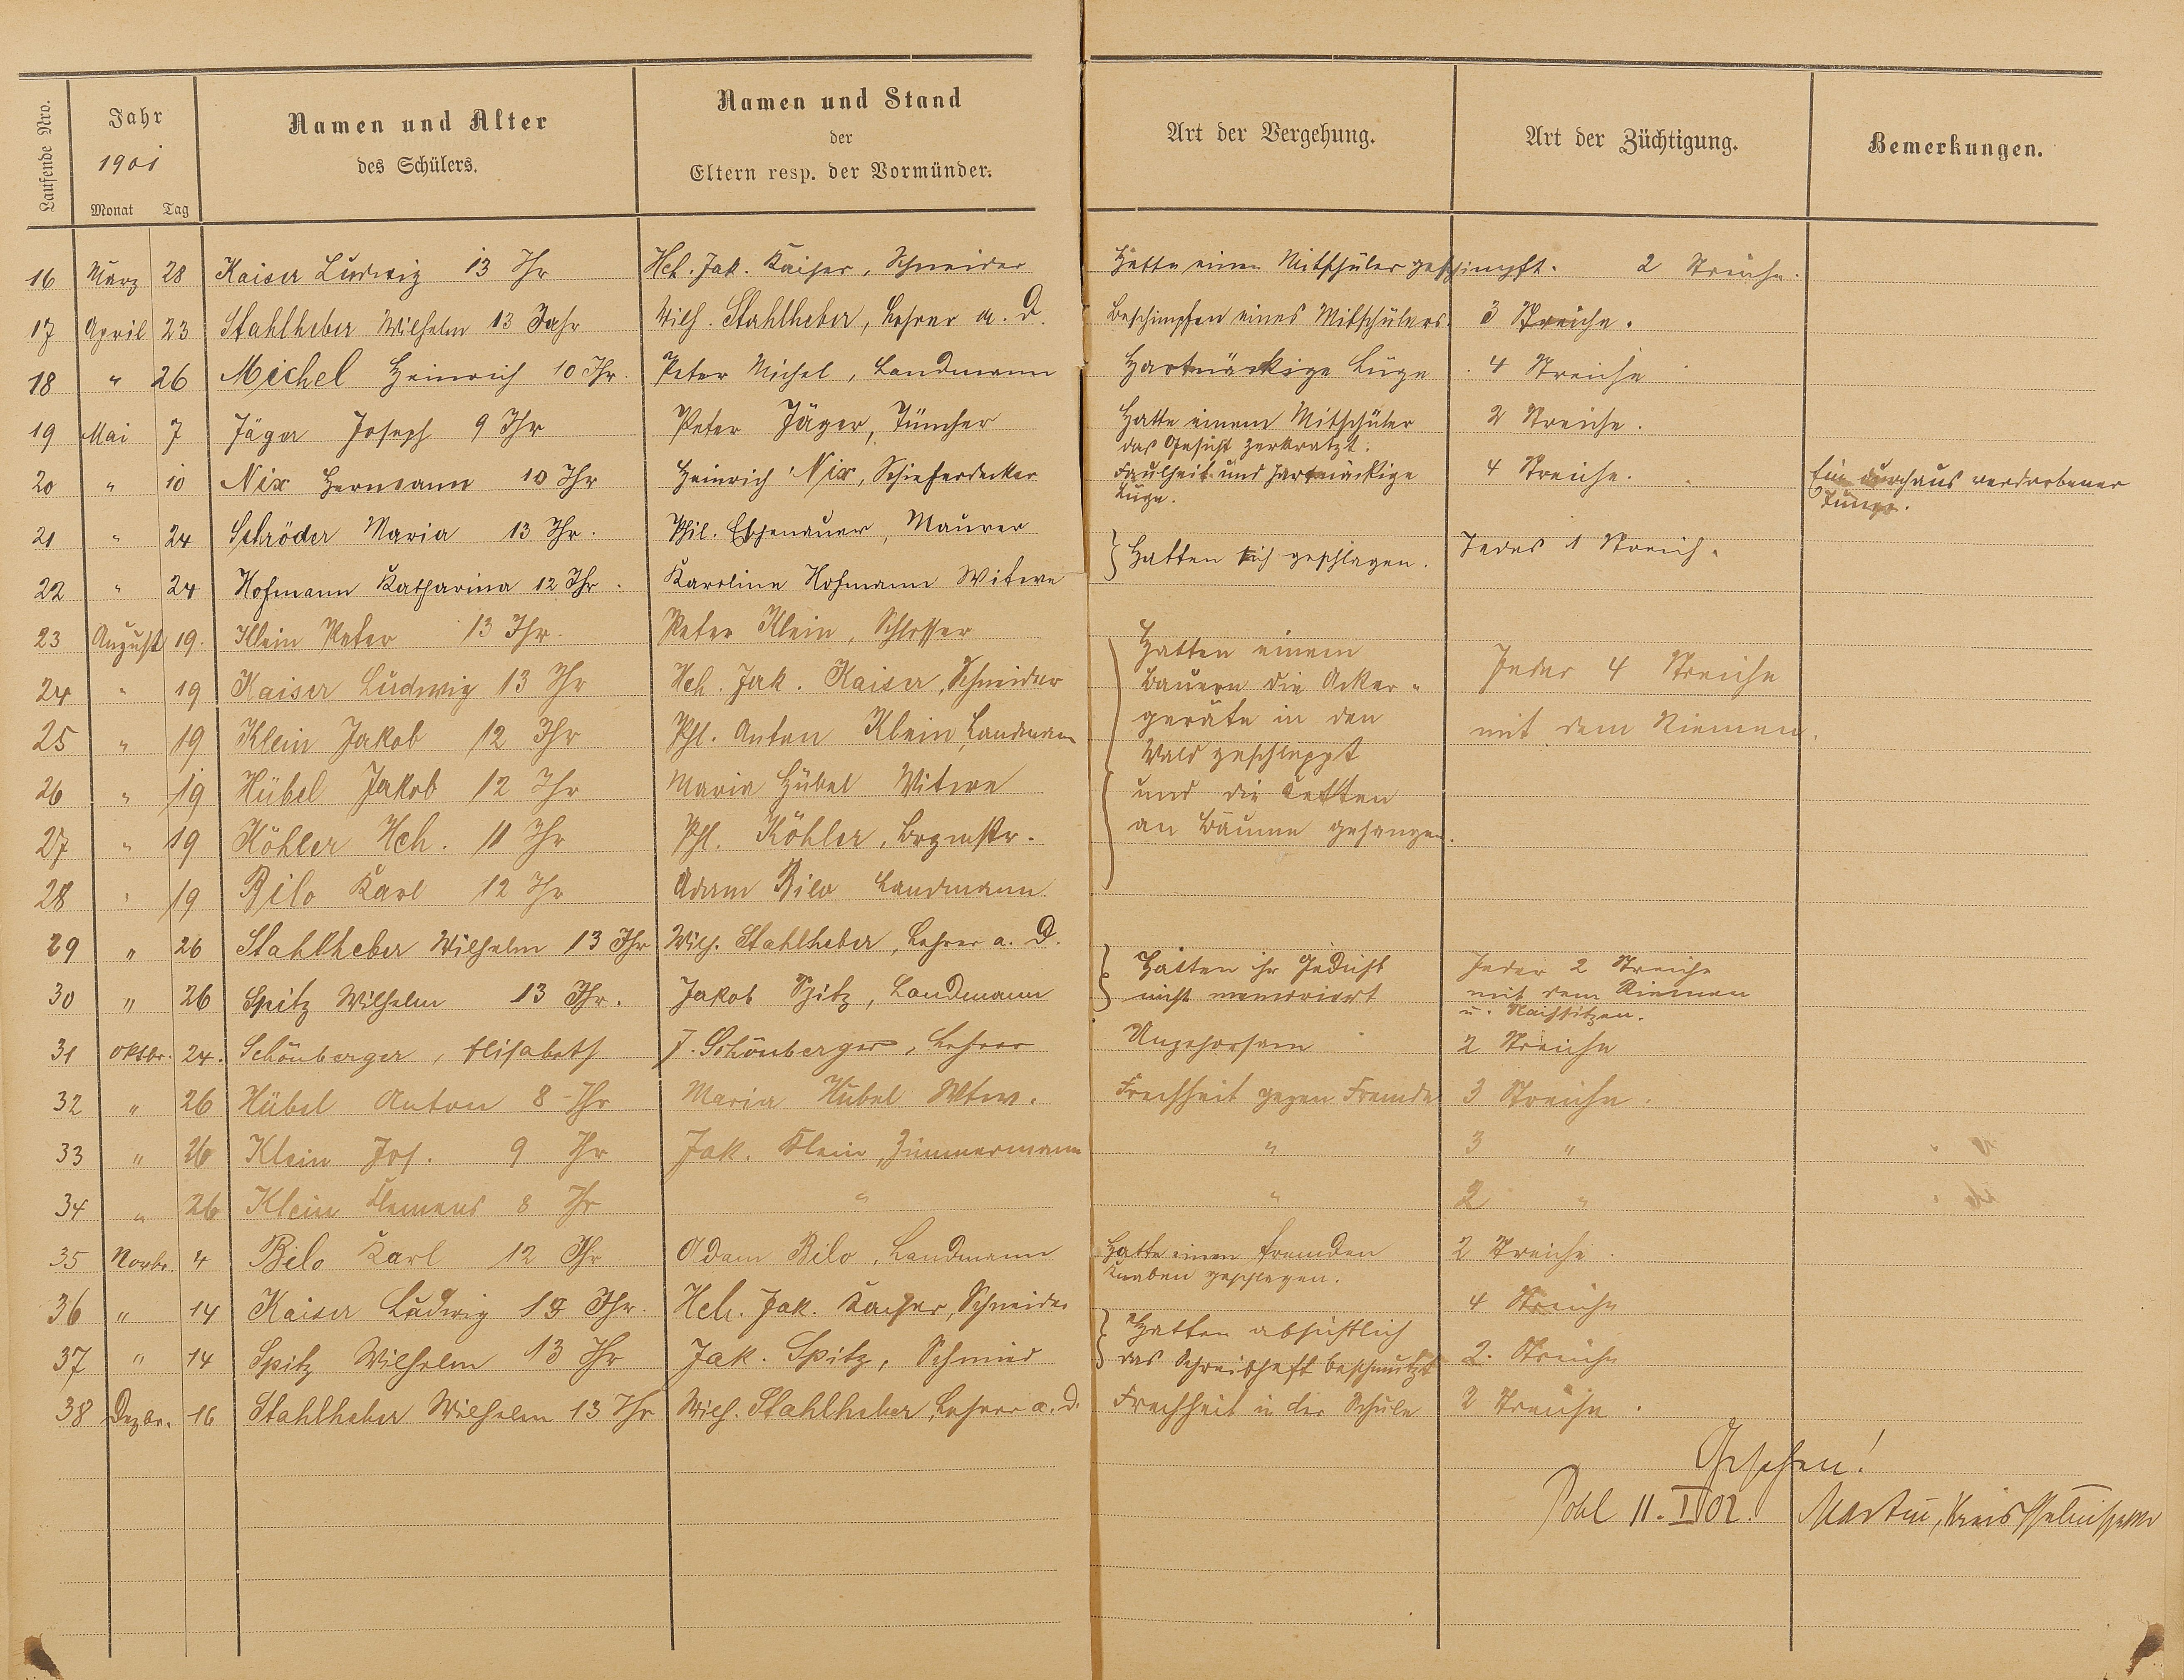 Laufende Nro.
Jahr
1901
Monat Tag
Namen und Alter
des Schülers.
Namen und Stand
der
Eltern resp. der Vormünder.
Art der Vergehung.
Art der Züchtigung.
Bemerkungen.
16 März 28 Kaiser Ludwig 13 Jhr Hch. Jak. Kaiser, Schneider Hatte einen Mitschüler geschimpft. 2 Streiche.
17 April 23 Stahlheber Wilhelm 13 Jahr Wilh. Stahlheber, Lehrer a. D. Beschimpfen eines Mitschülers 3 Streiche.
18 " 26 Michel Heinrich 10 Jhr. Peter Michel, Landmann Hartnäckige Lüge 4 Streiche
19 Mai 7 Jäger Joseph 9 Jhr Peter Jäger, Tüncher Hatte einem Mitschüler 2 Streiche.
das Gesicht zerkratzt.
20 " 10 Nix Hermann 10 Jhr Heinrich Nix, Schieferdecker Faulheit und hartnäckige 4 Streiche. Ein durchaus verdorbener
Lüge. Junge.
21 " 24 Schröder Maria 13 Jhr. Phil. Eschenauer, Maurer
Hatten sich geschlagen. Jedes 1 Streich.
22 " 24 Hofmann Katharina 12 Jhr. Karoline Hofmann Witwe
23 August 19. Klein Peter 13 Jhr. Peter Klein, Schlosser
Hatten einem
24 " 19 Kaiser Ludwig 13 Jhr Hch. Jak. Kaiser, Schneider Bauern die Acker- Jeder 4 Streiche
25 " 19 Klein Jakob 12 Jhr Phl. Anton Klein, Landmann geräte in den mit dem Riemen.
Wald geschleppt
26 " 19 Hübel Jakob 12 Jhr Maria Hübel Witwe und die Ketten
27 " 19 Köhler Hch. 11 Jhr Phl. Köhler, Brgmstr. an Bäume gehangen.
28 " 19 Bilo Karl 12 Jhr Adam Bilo Landmann
29 " 26 Stahlheber Wilhelm 13 Jhr Wilh. Stahlheber, Lehrer a. D. Hatten ihr Gedicht Jeder 2 Streiche
30 " 26 Spitz Wilhelm 13 Jhr. Jakob Spitz, Landmann nicht memoriert mit dem Riemen
u. Nachsitzen.
31 Oktbr. 24. Schönberger, Elisabeth J. Schönberger, Lehrer Ungehorsam 2 Streiche
32 " 26 Hübel Anton 8 Jhr Maria Hübel Wtw. Frechheit gegen Fremde 3 Streiche.
33 " 26 Klein Jos. 9 Jhr Jak. Klein, Zimmermann " 3 "
34 " 26 Klein Klemens 8 Jhr " " 2 "
35 Novbr. 4 Bilo Karl 12 Jhr Adam Bilo, Landmann Hatte einen fremden 2 Streiche.
Knaben geschlagen.
36 " 14 Kaiser Ludwig 13 Jhr. Hch. Jak. Kaiser, Schneider 4 Streiche
Hatten absichtlich
37 " 14 Spitz Wilhelm 13 Jhr Jak. Spitz, Schmied das Schreibheft beschmutzt 2. Streiche
38 Dezbr. 16 Stahlheber Wilhelm 13 Jhr Wilh. Stahlheber, Lehrer a. D. Frechheit in der Schule 2 Streiche.
Gesehen!
11. I 02. Martin, Kreisschulinspektor